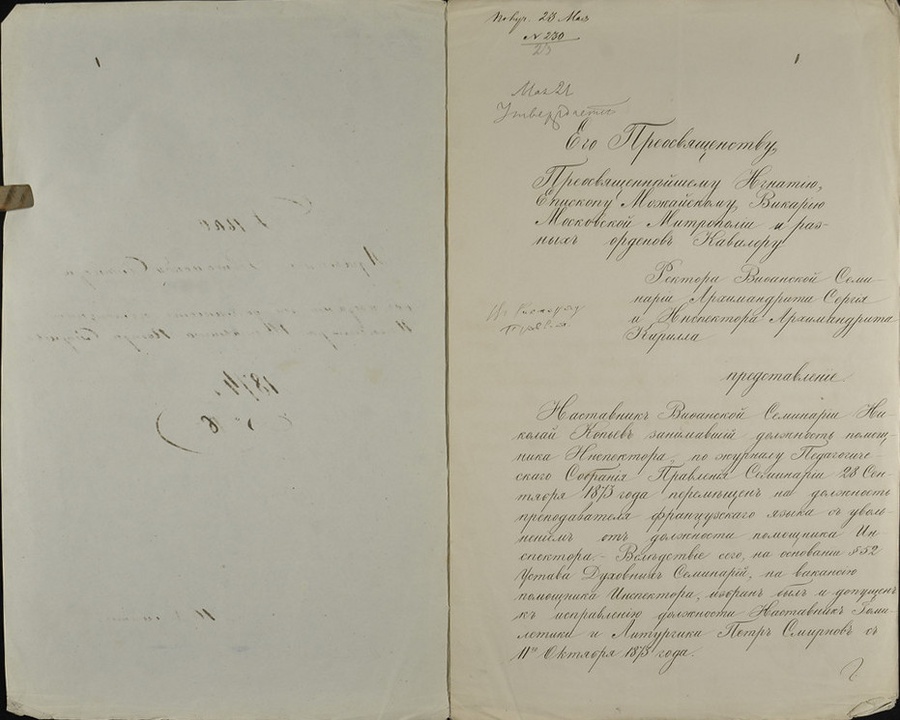 Получ. 23 Мая
№ 230
23
Мая 21
Утверждается
Его Преосвященству,
Преосвященнѣйшему Игнатію,
Епископу Можайскому, Викарію
Московской Митрополіи и раз-
ныхъ орденовъ Кавалеру
Ректора Виѳанской Семи-
наріи Архимандрита Сергія
и Инспектора Архимандрита
Кирилла
представленіе.
Наставникъ Виѳанской Семинаріи Ни-
колай Копьевъ занимавшій должность помощ-
ника Инспектора, по журналу Педагогиче-
скаго Собранія Правленія Семинаріи 28 Сен-
тября 1873 года перемѣщенъ на должность
преподавателя французскаго языка съ уволь-
неніемъ отъ должности помощника Ин-
спектора. Вслѣдствіе сего, на основаніи § 52
Устава Духовныхъ Семинарій, на вакансію
помощника Инспектора, избранъ былъ и допущенъ
къ исправленію должности Наставникъ Гоми-
летики и Литургики Петръ Смирновъ съ
11го Октября 1873 года.